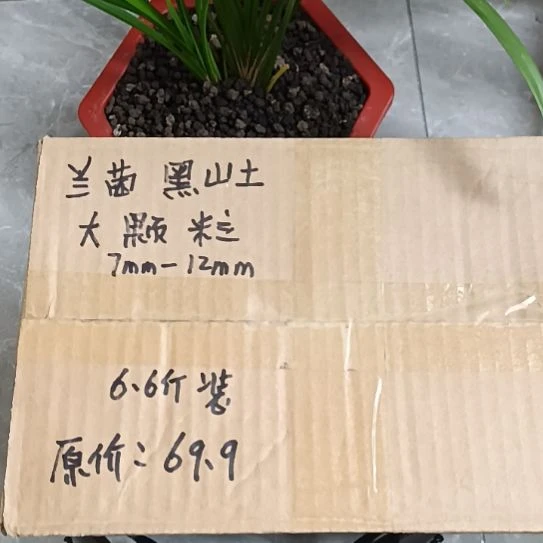 兰菌 黑山土
大 颗 粒
7mm-12mm
6.6斤装
原价:69.9